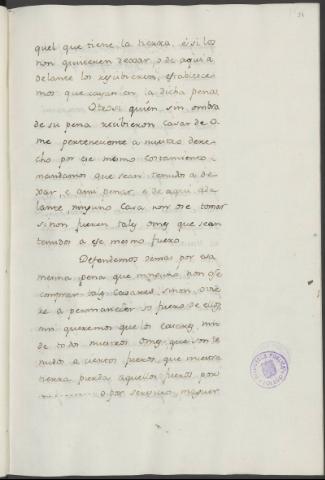 quel que tiene la tierra. é si los
non quisieren dexar, o de aqui a
delante los rescibieren, establece
mos que cayan en la dicha pena.
Otrosi quien sin ombra
de su pena recibieron casar de O
me perteneciente a nuestro dere-
cho por ese mesmo cortamiento
mandamos que sean tenudos a de
xar, e a mi penar, e de aqui ade
lante, ninguno casa non ose tomar
si non fueren tales omes que sean
tenudos a ese mesmo fuero.
Defendemos demas por esa
mesma pena que ninguno non ose
comprar tales casares, sinon
se a permanecer so fuero de ellos
nin queremos que los
de todos nuestros omes que son te
nudos a ciertos fueros, que nuestra
tierra pierda aquellos fueros por
o por servicio,